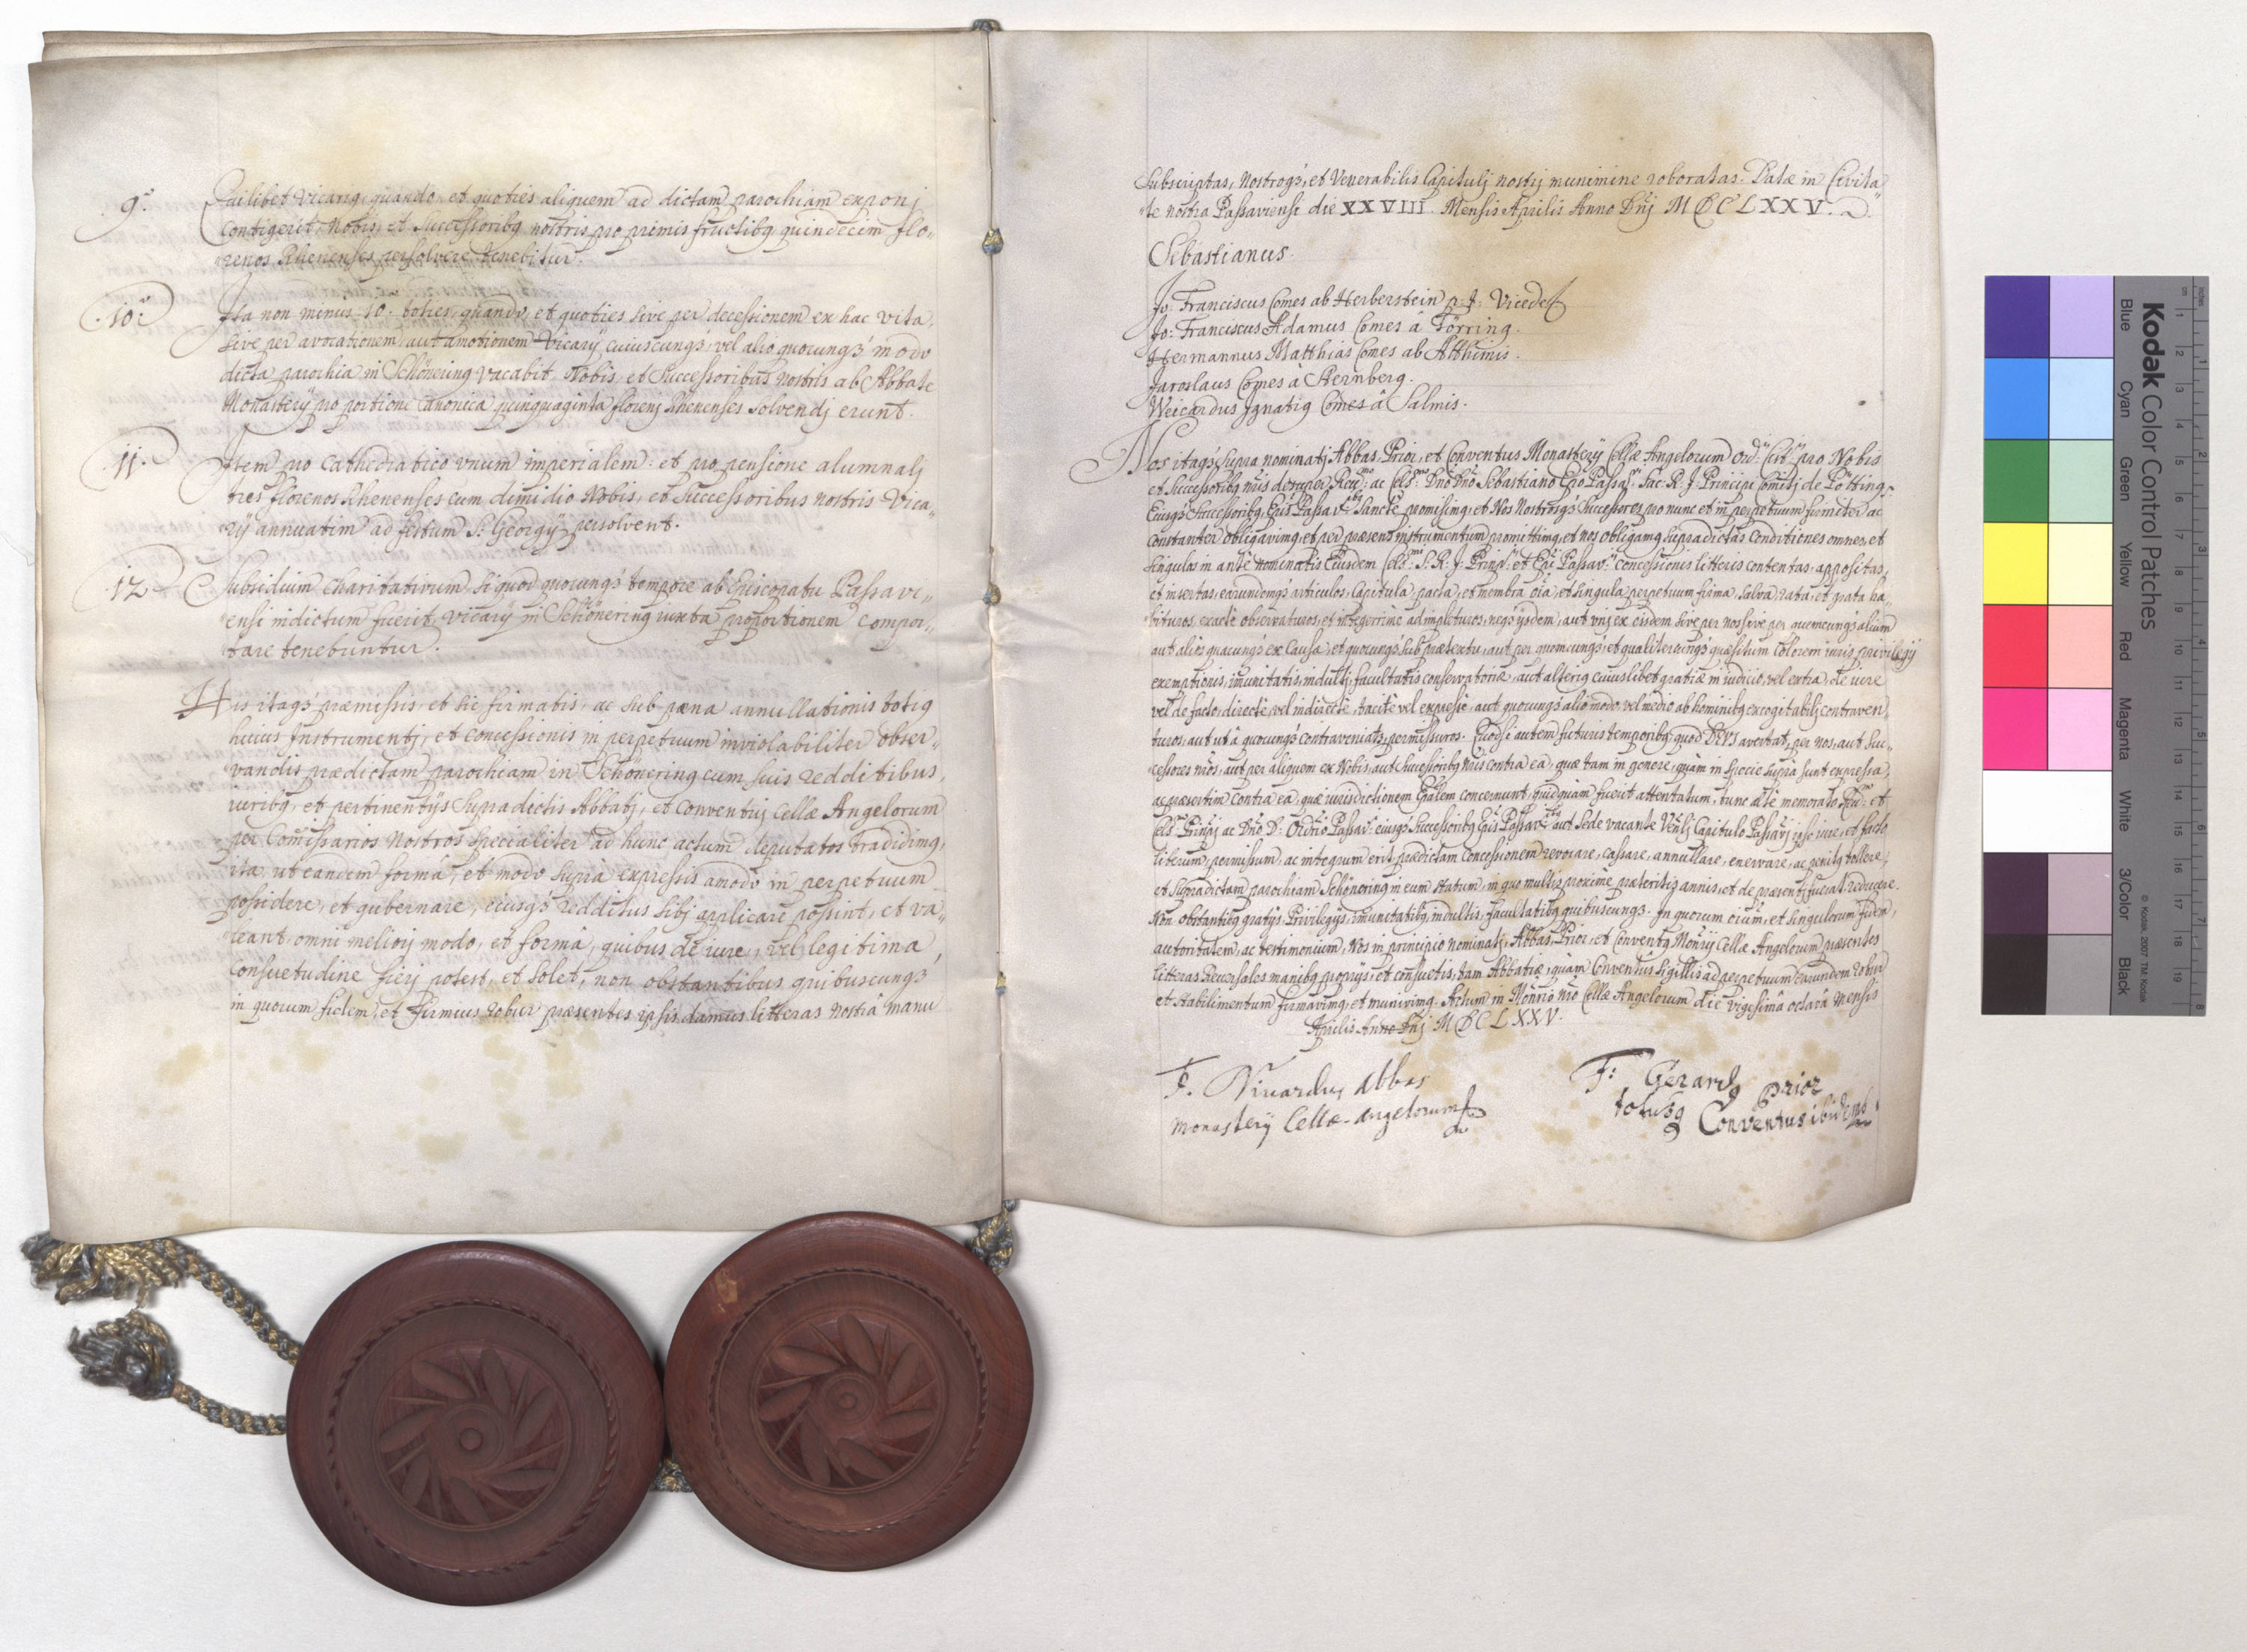 9.º Quilibet Vicarig, quando, et quoties aliquem ad dictam parochiam exponj
Contigerit, Nobis, et Successoribg nostris pro primis fructibg quindecim flo„
„renos Rhenenses persolvere tenebitur.
10.º Ita non minus 10. toties, quando, et quoties sive per decessionem ex hac vita,
sive per avocationem, aut amotionem Vicarÿ cuiuscunqз, vel alio quocunqз modo
dicta parochia in Schönering vacabit, Nobis, et Successoribus nostris ab Abbate
Monasterÿ pro portione Canonica quinquaginta florenj Rhenenses solvendj erunt.
11. Item pro Cathedratico vnum imperialem: et pro pensione alumnalj
tres florenos Rhenenses cum dimidio Nobis, et Successoribus nostris Vica„
„rÿ annuatim ad festum S: Georgÿ persolvent.
12. Subsidium Charitativum, si quod quocunqз tempore ab Episcopatu Passavi„
„ensi indictum fuerit, Vicarÿ in Schönering iuxta proportionem compor„
„tare tenebuntur.
His itaqз præmissis, et sic firmatis, ac sub pæna annullationis totig
huius Instrumentj, et concessionis in perpetuum inviolabiliter obser„
„vandis prædictam parochiam in Schönering cum suis redditibus,
iuribg, et pertinentÿs supradictis Abbatj, et Conventuj Cellæ Angelorum
per Comissarios Nostros specialiter ad hunc actum deputatos tradidimg,
ita, ut eandem formâ, et modo suprà expressis amodò in perpetuum
possidere, et gubernare, eiusqз redditus sibj applicare possint, et va„
„leant, omni meliorj modo, et formâ, quibus de iure, vel legitima
Consuetudine fierj potest, et solet, non obstantibus quibuscunqз
in quorum fidem, et firmius robur præsentes ipsis damus litteras nostrâ manu
Subscriptas, Nostroqз, et Venerabilis Capitulj nostrj munimine roboratas. Datæ in Civita„
„te nostra Passaviensi die XXVIII. Mensis Aprilis Anno Dnj MDCLXXV.
Sebastianus.
Jo: Franciscus Comes ab Herberstein p: J: Vicedec
Jo: Franciscus Adamus Comes â Törring.
Hermannus Matthias Comes ab Atthimis.
Jaroslaus Comes à Sternberg.
Weicardus Ignatig Comes â Salmis.
Nos itaqз supra nominatj Abbas, Prior, et Conventus Monasterÿ Cellæ Angelorum Ord: Cist: pro Nobis
et Successoribg nris Reũ:mo ac Cels:mo Dno Dno Sebastiano Epo Passa: Sac: R: J: Principi Comitj de Pötting,
Eiusqз Successoribg Epis Passav: Sanctè promisimg, et Nos Nostrosqз Successores pro nunc et in perpetuum firmiter ac
Constanter obligavimg, et per præsens instrumentum promittimg, et nos obligamg supradictas Conditiones omnes, et
singulas in antè nominatis Eiusdem Cels:mi S: R: J: Prinp: et Epi Passav: Concessionis litteris contentas, appositas,
et insertas, earundemqз articulos, Capitula, pacta, et membra oia, et singula perpetuum firma, salva, rata, et grata ha„
„bituros, exactè observaturos, et integerrimè adimpleturos, neqз ÿsdem, aut vnj ex eisdem sive per nos, sive per quemcunqз alium
aut alios quacunqз ex Causa, et quocunqз sub prætextu, aut per quemcunqз, et qualitercunqз quæsitum Colorem iuris, privilegÿ
exemptionis, imunitatis, indultj, facultatis conservatoriæ, aut alterig cuiuslibet gratiæ in iudicio, vel extra, de iure
vel de facto, directè, vel indirectè, tacitè vel expressè, aut quocunqз alio modo, vel medio ab hominibg excogitabilj contraven„
„turos, aut ut â quocunqз contraveniatr, permissuros. Quodsi autem futuris temporibg, quod DEVS avertat, per nos, aut Suc„
„cessores nros, aut per aliquem ex Nobis, aut Successoribg nris contra ea, quæ tam in genere, quàm in specie suprà sunt expressa,
ac præsertim contra ea, quæ iurisdictionem Epalem concernunt, quidquam fuerit attentatum, tunc altè memorato Reũ:mo et
Cels:mo Prinpj ac Dno D: Ordrio Passav: eiusqз Successoribg Epis Passav: aut Sede vacante Venlj Capitulo Passavj ipso iure, et facto
liberum, permissum, ac integrum erit prædictam Concessionem revocare, cassare, annullare, enervare, ac penitg tollere,
et supradictam parochiam Schönering in eum statum, in quo multis proximè præteritis annis, et de præsentj fuerat, reducere.
Non obstantibg gratÿs, Privilegÿs, imunitatibg, indultis, facultatibg quibuscunqз. In quorum oium, et singulorum fidem,
autoritatem, ac testimonium, Nos in principio nominatj Abbas, Prior, et Conventg Monrÿ Cellæ Angelorum præsentes
litteras Reversales manibg proprÿs, et consuetis, tam Abbatiæ, quàm Conventus sigillis ad perpetuum earundem robur
et stabilimentum firmavimg, et munivimg. Actum in Monrio nro Cellæ Angelorum die vigesimâ octavâ mensis
Aprilis Anno Dnj MDCLXXV.
F. Nivardus Abbas
Monasterÿ Cellæ-Angelorum
F: Gerardg Prior
totusqg Conventus ibidem
Kodak Color Control Patches
Blue Cyan Green Yellow Red Magenta White 3/Color Black
© Kodak, 2007 TM: Kodak
cm 1 2 3 4 5 6 7 8 9 10 11 12 13 14 15 16 17 18 19
inches 1 2 3 4 5 6 7 8